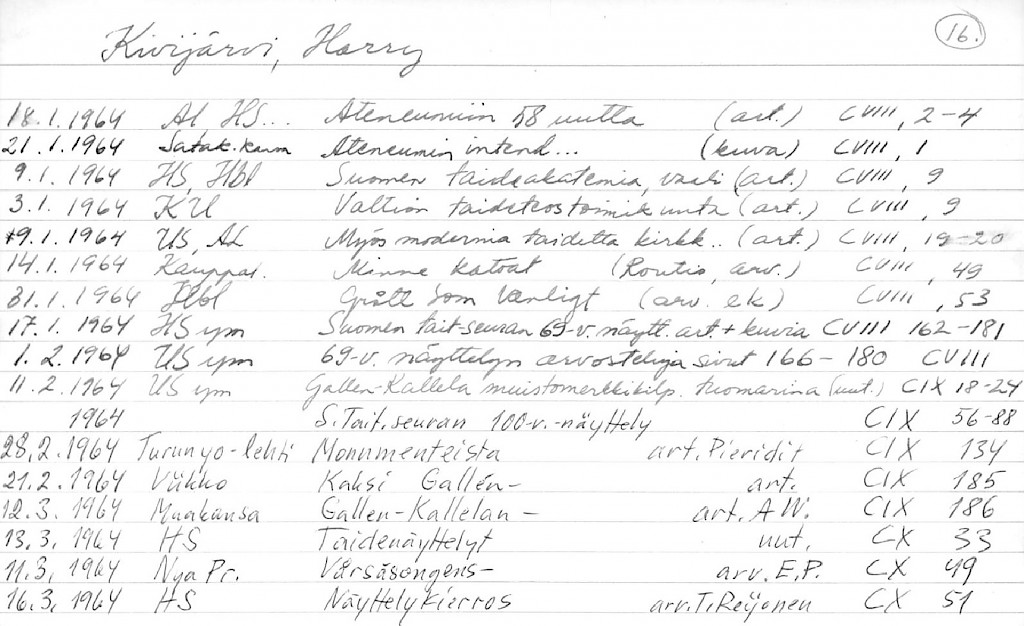 16.
Kivijärvi, Harry
18.1.1964 AL, HS... Ateneumiin 58 uutta (art.) CVIII, 2-4
21.1.1964 Satak.kansa Ateneumin intend... (kuva) CVIII, 1
9.1.1964 HS, Hbl Suomen taideakatemia, vaali (art.) CVIII, 9
3.1.1964 KU Valtion taideteostoimikunta (art.) CVIII, 9
19.1.1964 US, AL Myös modernia taidetta kirkk.. (art.) CVIII, 19-20
14.1.1964 Kauppal. Minne katoat (Routio, arv.) CVIII, 49
31.1.1964 Hbl Grått som vänligt (arv. ek) CVIII, 53
17.1.1964 HS ym Suomen tait.seuran 69-v. näytt. art. + kuvia CVIII 162-181
1.2.1964 US ym 69-v. näyttelyn arvosteluja sivut 166-180 CVIII
11.2.1964 US ym Gallen-Kallela muistomerkkikilp. tuomarina (uut.) CIX 18-24
1964 S.Tait.seuran 100-v.-näyttely CIX 56-88
28.2.1964 Turunyo-lehti Monumenteista art. Pieridit CIX 134
21.2.1964 Viikko Kaksi Gallén- art. CIX 185
12.3.1964 Maakansa Gallen-Kallelan- art. A.W. CIX 186
13.3.1964 HS Taidenäyttelyt uut. CX 33
11.3.1964 Nya Pr. Vårsäsongens- arv. E.P. CX 49
16.3.1964 HS Näyttelykierros arv. T.Reijonen CX 51